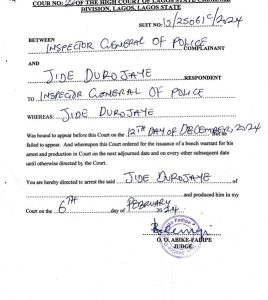 COUR NO: 26 OF THE HIGH COURT OF LAGOS STATE CRIMINAL
DIVISION, LAGOS, LAGOS STATE
SUIT NO: 12/25061C/2024
BETWEEN
INSPECTOR GENERAL OF POLICE
COMPLAINANT
AND
JIDE DUROJAYE
RESPONDENT
TO INSPECTOR GENERAL OF POLICE
WHEREAS: JIDE DUROJAYE
Was bound to appear before this Court on the 12TH DAY OF DECEMBER, 2024
failed to appear. And whereupon this Court ordered for the issuance of a bench warrant for his
arrest and production in Court on the next adjourned date and on every other subsequent date
until otherwise directed by the Court.
You are hereby directed to arrest the said JIDE DUROJAYE of
and produced him in my
Court on the 6TH day of FEBRUARY 2024
O. O. ABIKE-FADIPE
JUDGE